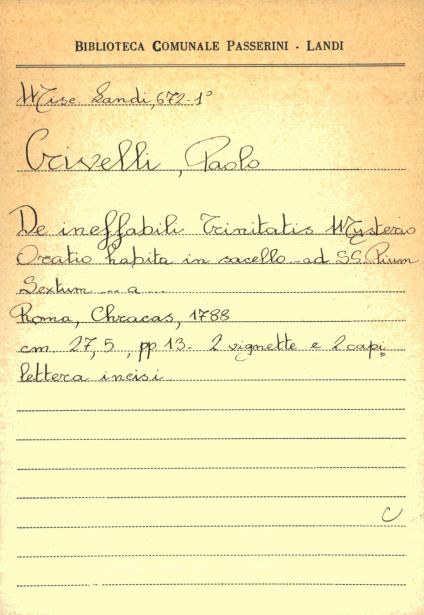 BIBLIOTECA COMUNALE PASSERINI - LANDI
Misc. Landi, 672-1°
Crivelli, Paolo
De ineffabili Trinitatis Mysterio
Oratio habita in sacello ad SS. Pium
Sextum ... a ...
Roma, Chracas, 1788
cm. 27,5, pp 13- 2 vignette e 2 capi
lettera incisi
C